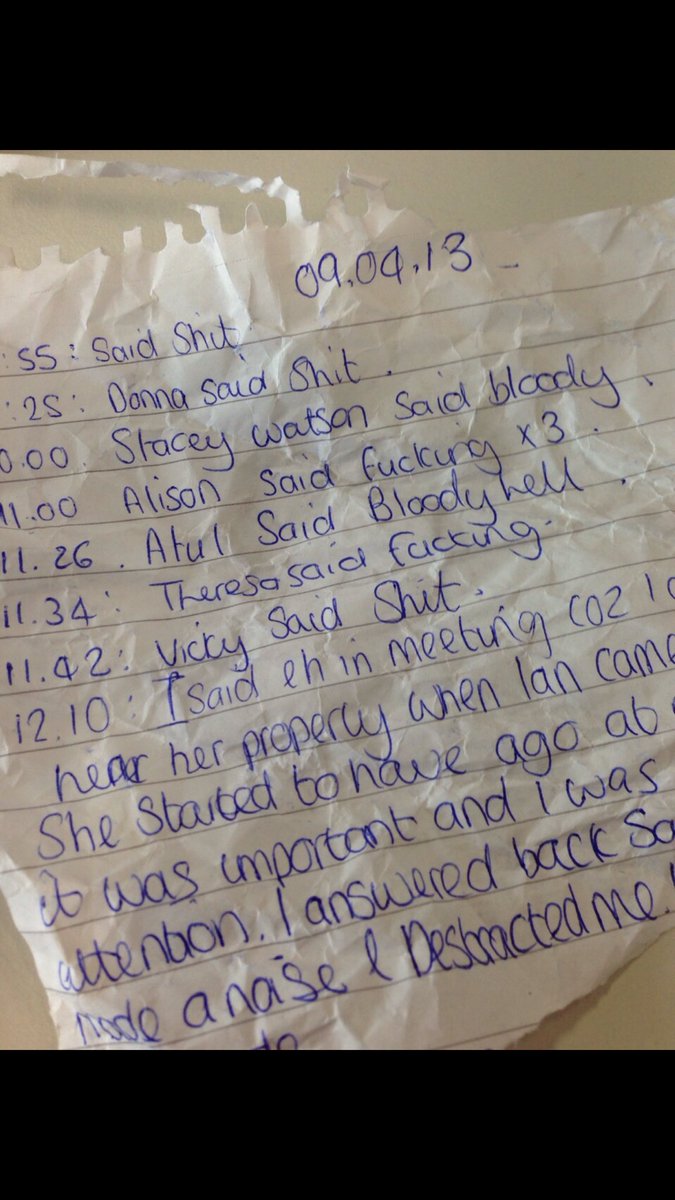 09.04.13 -
:55: Said Shit.
:25: Donna said Shit.
0.00. Stacey watson said bloody.
11.00 Alison said fucking x3.
11.26. Atul Said Bloody hell.
11.34: Theresa said fucking.
11.42: Vicky Said Shit.
12.10: I said eh in meeting COZ I
hear her properly when Ian came
She Started to have ago at
it was important and I was
attention. I answered back
made a noise & Destracted me.